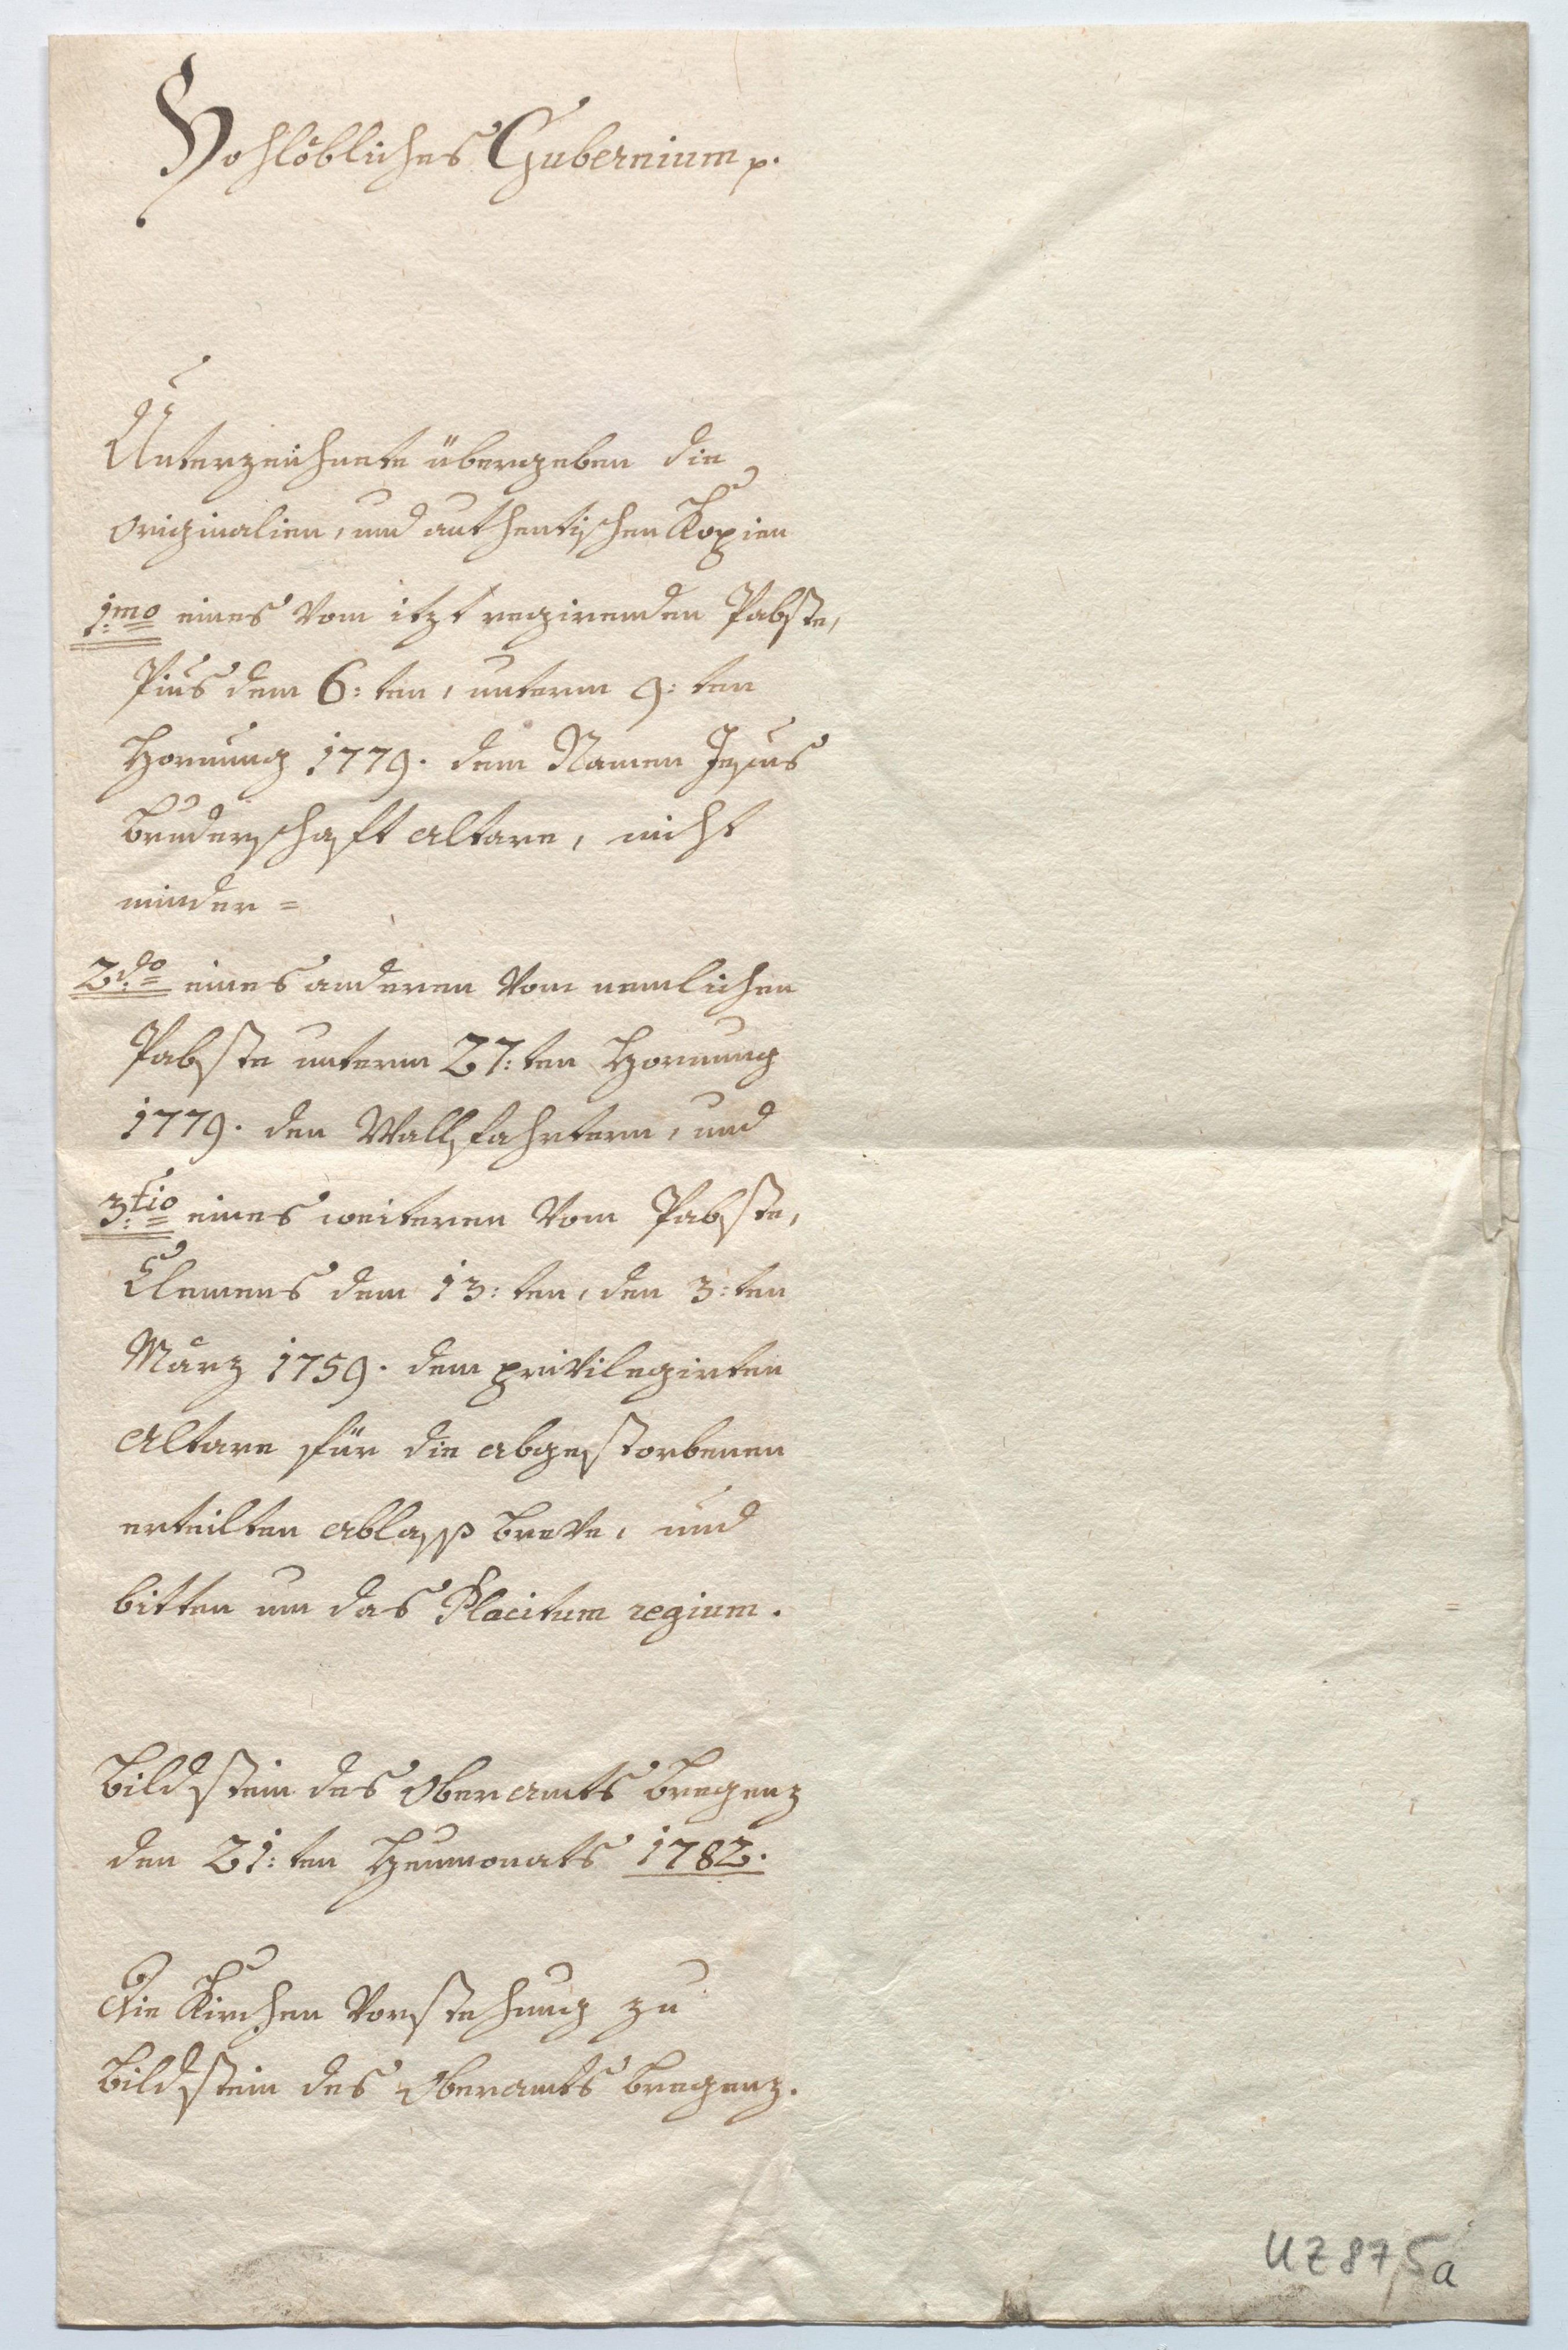 Hohlöbliches Gubernium p.
Unterzeichnete übergeben die
Originalien, und authentischen Kopien
1:mo eines vom itzt regirenden Pabste,
Pius dem 6:ten, unterm 9:ten
Hornung 1779. dem Namen Jesus
Bruderschaft Altare, nicht
minder=
2:do eines anderen vom nemlichen
Pabste unterm 27:ten Hornung
1779. den Wallfahrtern, und
3:tio eines weiteren vom Pabste,
Clemens dem 13:ten, den 3:ten
März 1759. dem privilegirten
Altare für die abgestorbenen
erteilten Ablass Breve, und
bitten um das Placitum regium.
Bildstein des Oberamts Bregenz
den 21:ten Heumonats 1782.
Die Kirchen Vorstehung zu
Bildstein des Oberamts Bregenz.
UZ 87, 5a